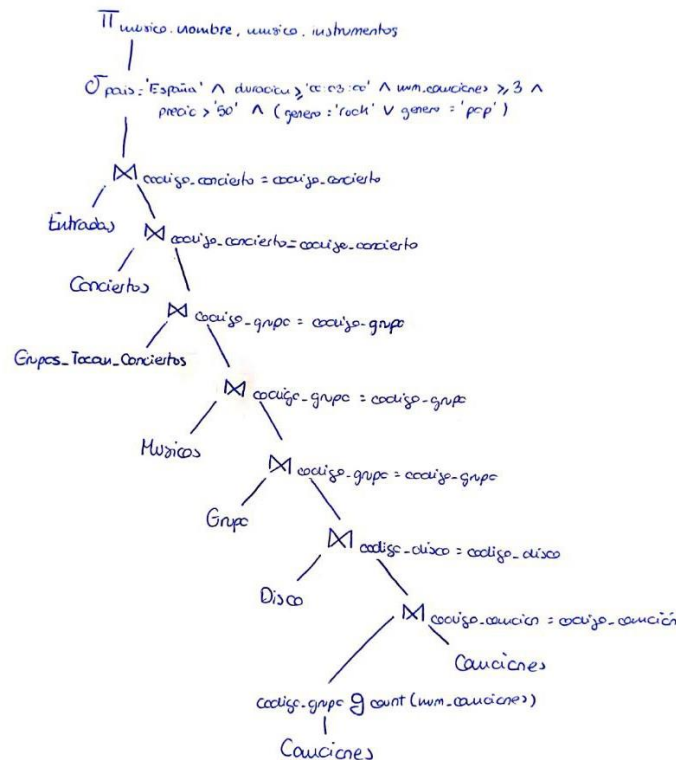 π musico.nombre, musico.instrumentos
σ pais='España' ∧ duracion ≥ '00:03:00' ∧ num_canciones ≥ 3 ∧
precio > '50' ∧ (genero = 'rock' ∨ genero = 'pop')
⋈ codigo_concierto = codigo_concierto
Entradas
⋈ codigo_concierto = codigo_concierto
Conciertos
⋈ codigo_grupo = codigo_grupo
Grupos_Tocan_Conciertos
⋈ codigo_grupo = codigo_grupo
Musicos
⋈ codigo_grupo = codigo_grupo
Grupo
⋈ codigo_disco = codigo_disco
Disco
⋈ codigo_cancion = codigo_canción
Canciones
codigo_grupo g count(num_canciones)
Canciones